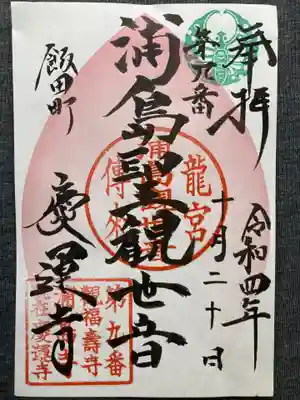 奉拝
第九番
浦島聖観世音
飯田町
慶運寺
令和四年
十月二十日
龍宮
傳来
第九番
観福壽寺